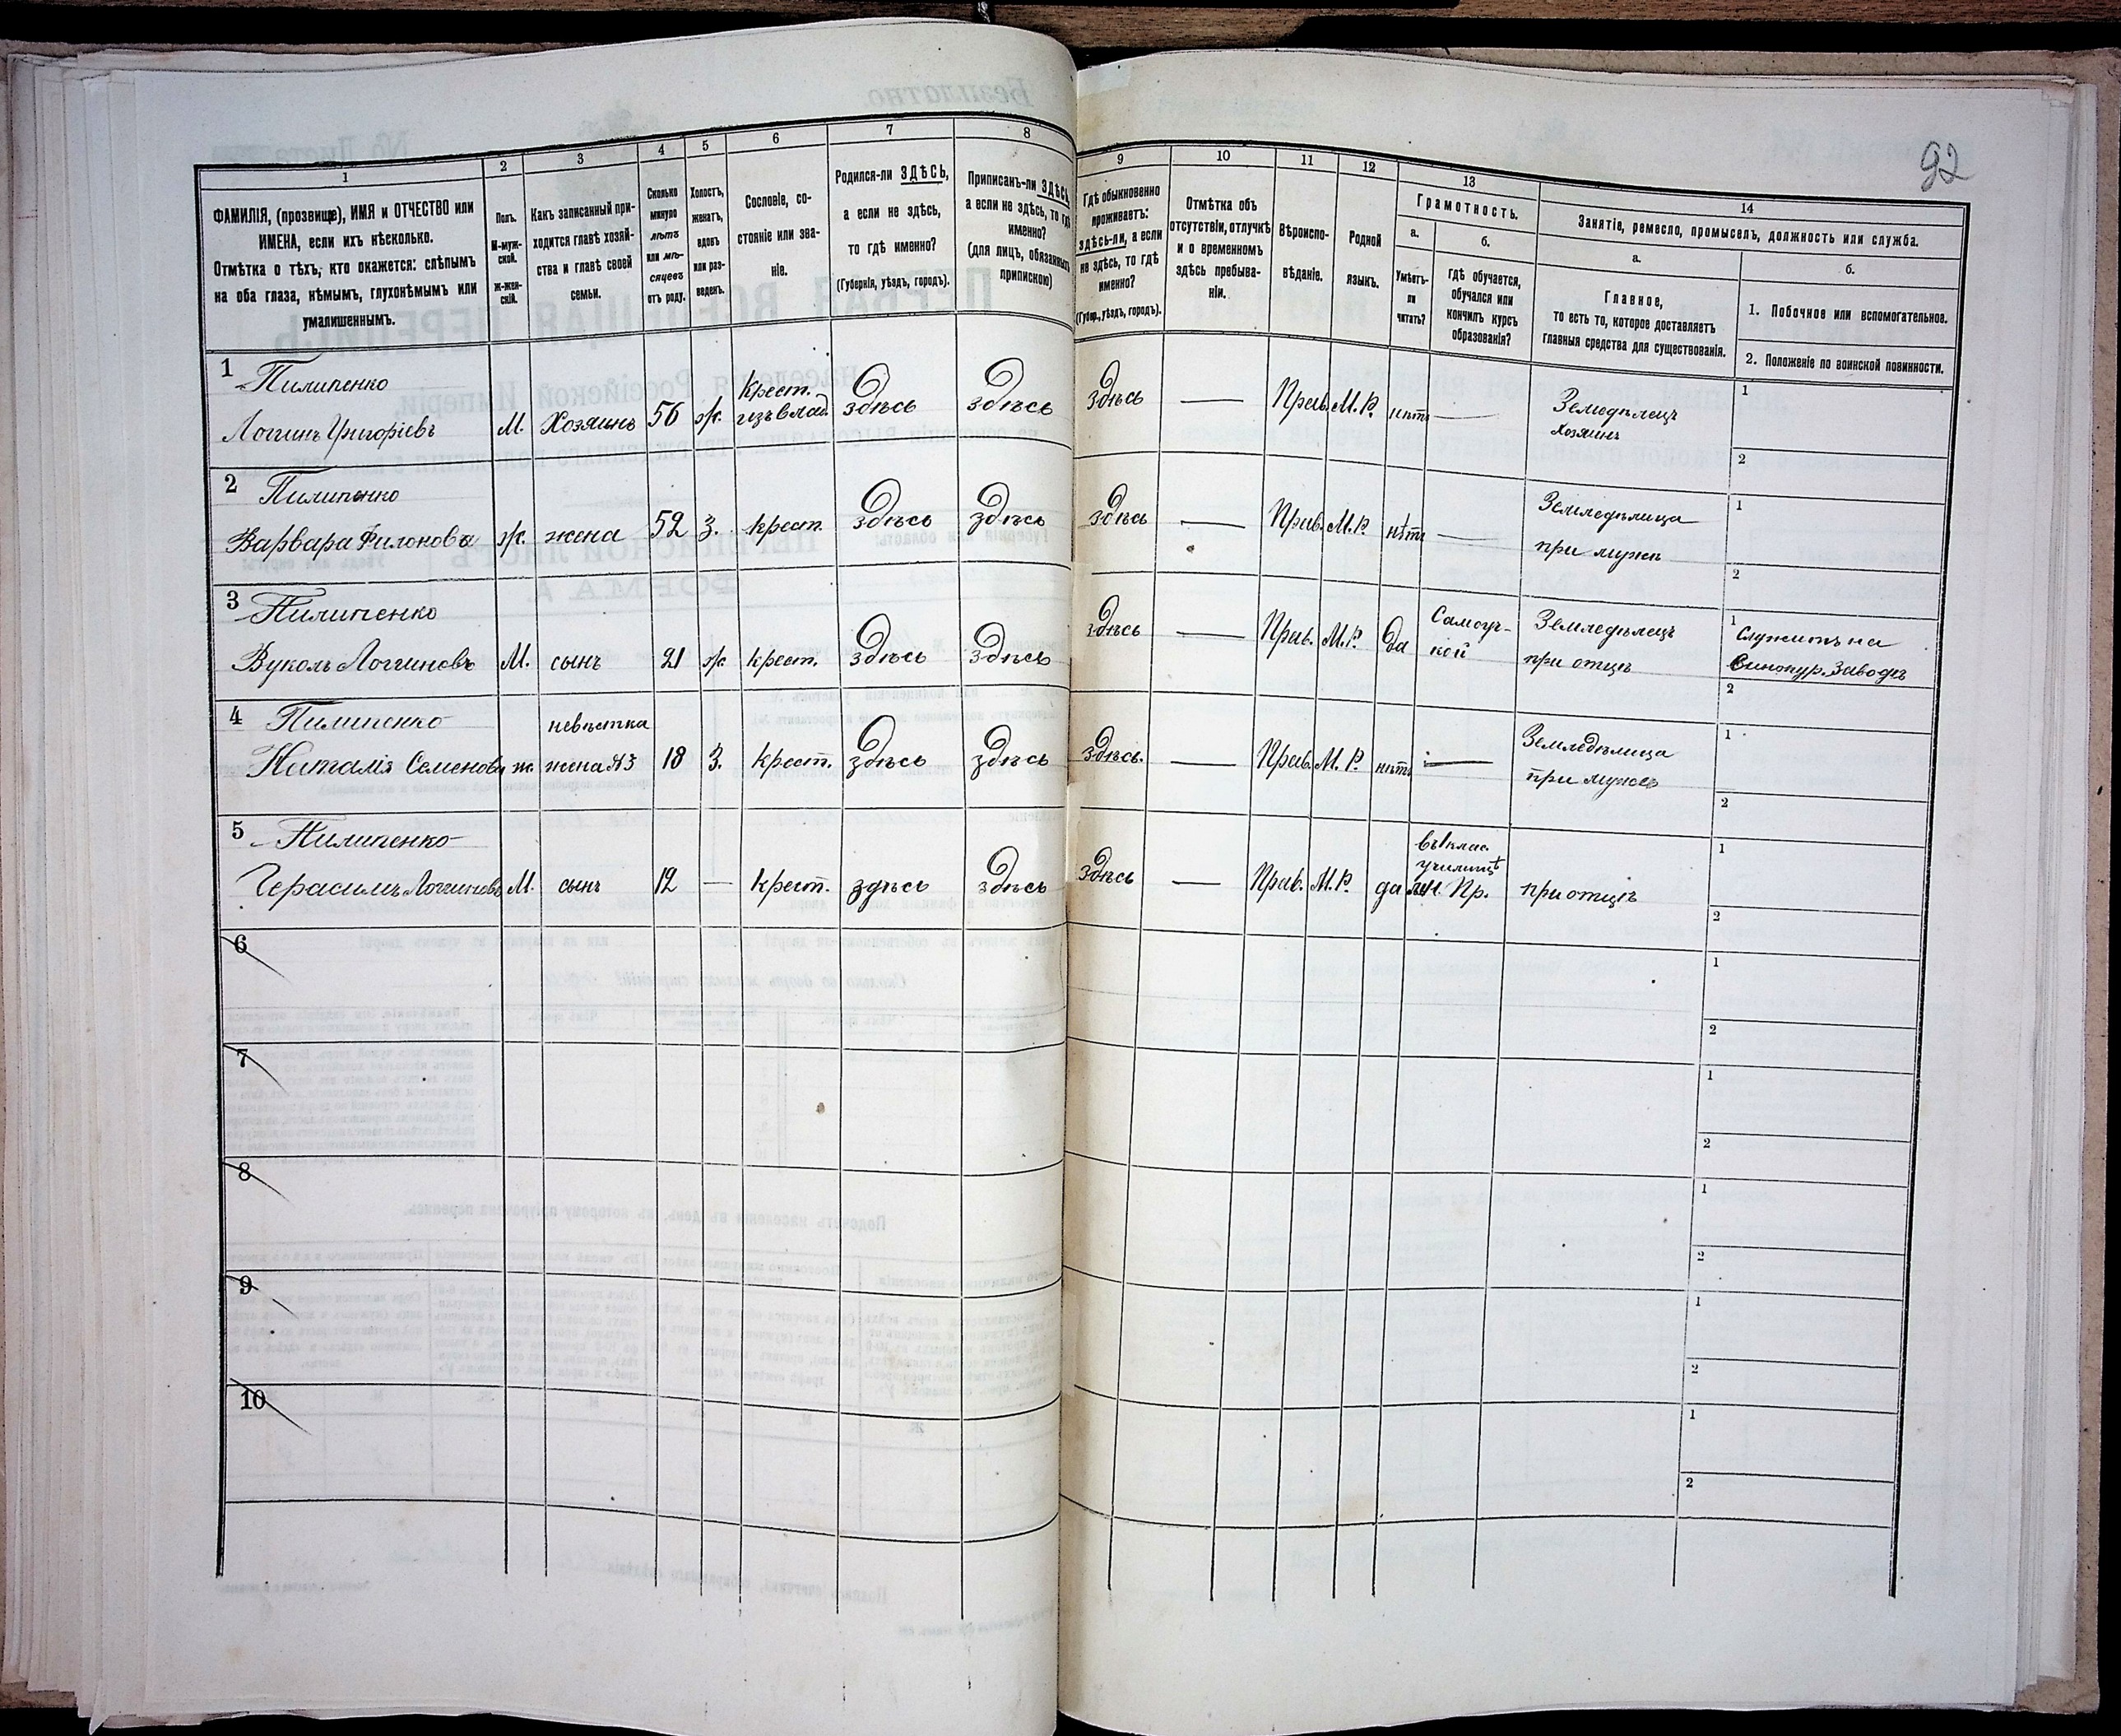 92
1
2
3
4
5
6
7
8
9
10
11
12
13
14
ФАМИЛІЯ, (прозвище), ИМЯ и ОТЧЕСТВО или
ИМЕНА, если ихъ нѣсколько.
Отмѣтка о тѣхъ, кто окажется: слѣпымъ
на оба глаза, нѣмымъ, глухонѣмымъ или
умалишеннымъ.
Полъ.
М-муж-
ской.
Ж-жен-
скій.
Какъ записанный при-
ходится главѣ хозяй-
ства и главѣ своей
семьи.
Сколько
минуло
лѣтъ
или мѣ-
сяцевъ
отъ роду.
Холостъ,
женатъ,
вдовъ
или раз-
веденъ.
Сословіе, со-
стояніе или зва-
ніе.
Родился-ли ЗДѢСЬ,
а если не здѣсь,
то гдѣ именно?
(Губернія, уѣздъ, городъ).
Приписанъ-ли ЗДѢСЬ,
а если не здѣсь, то гдѣ
именно?
(для лицъ, обязанныхъ
припискою)
Гдѣ обыкновенно
проживаетъ:
здѣсь-ли, а если
не здѣсь, то гдѣ
именно?
(Губер., уѣздъ, городъ).
Отмѣтка объ
отсутствіи, отлучкѣ
и о временномъ
здѣсь пребыва-
ніи.
Вѣроиспо-
вѣданіе.
Родной
языкъ.
Грамотность.
а.
Умѣетъ-
ли
читать?
б.
гдѣ обучается,
обучался или
кончилъ курсъ
образованія?
Занятіе, ремесло, промыселъ, должность или служба.
а.
Главное,
то есть то, которое доставляетъ
главныя средства для существованія.
б.
1. Побочное или вспомогательное.
2. Положеніе по воинской повинности.
1 Пилипенко
Логгинъ Григоріевъ М. Хозяинъ 56 ж. Крест. изъ влад. здѣсь здѣсь здѣсь — Прав. М. Р. нѣтъ — Земледѣлецъ хозяинъ
1
2
2 Пилипенко
Варвара Филонова ж. жена 52 З. крест. здѣсь здѣсь здѣсь — Прав. М. Р. нѣтъ — Земледѣлица при мужѣ
1
2
3 Пилипенко
Вуколъ Логгиновъ М. сынъ 21 ж. крест. здѣсь здѣсь здѣсь — Прав. М. Р. да Самоуч-кой Земледѣлецъ при отцѣ
1 Служитъ на
Винокур. Заводѣ
2
4 Пилипенко невѣстка
Наталія Семенова ж. жена №3 18 З. Крест. здѣсь здѣсь здѣсь. — Прав. М. Р. нѣтъ — Земледѣлица при мужѣ
1
2
5 Пилипенко
Герасимъ Логгиновъ М. сынъ 12 — Крест. здѣсь здѣсь здѣсь — Прав. М. Р. да въ 1 клас. училищѣ М. Н. Пр. при отцѣ
1
2
6
1
2
7
1
2
8
1
2
9
1
2
10
1
2